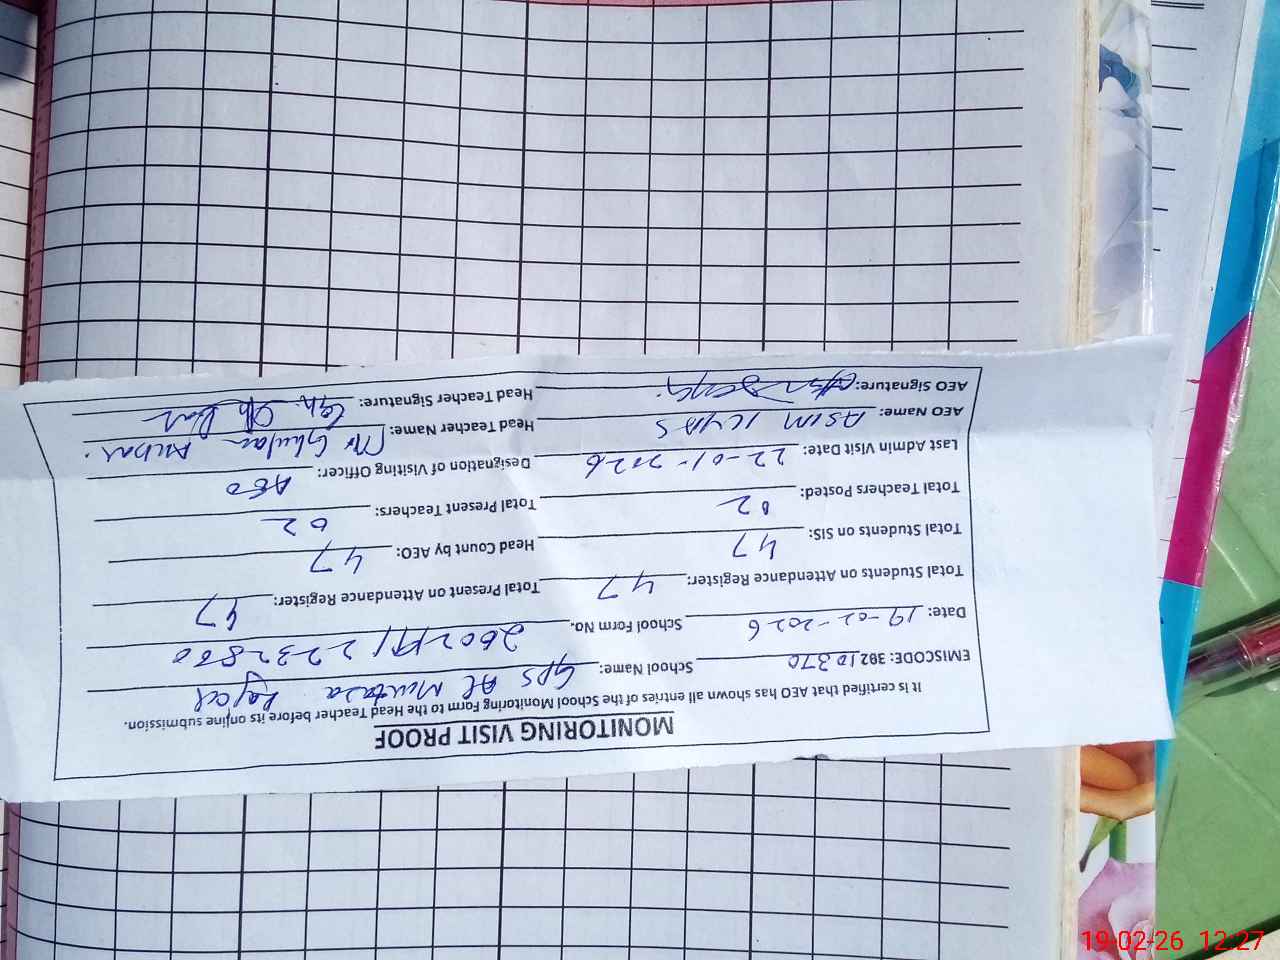 MONITORING VISIT PROOF
It is certified that AEO has shown all entries of the School Monitoring Form to the Head Teacher before its online submission.
EMISCODE: 39210370 School Name: GPS Al Murtaza
Date: 19-02-2026 School Form No.
Total Students on Attendance Register: 47 Total Present on Attendance Register: 47
Total Students on SIS: 47 Head Count by AEO: 47
Total Teachers Posted: 02 Total Present Teachers: 02
Last Admin Visit Date: 22-01-2026 Designation of Visiting Officer: AEO
AEO Name: ASIM ILYAS Head Teacher Name: Mr Ghulam
AEO Signature: Head Teacher Signature:
19-02-26 12:27